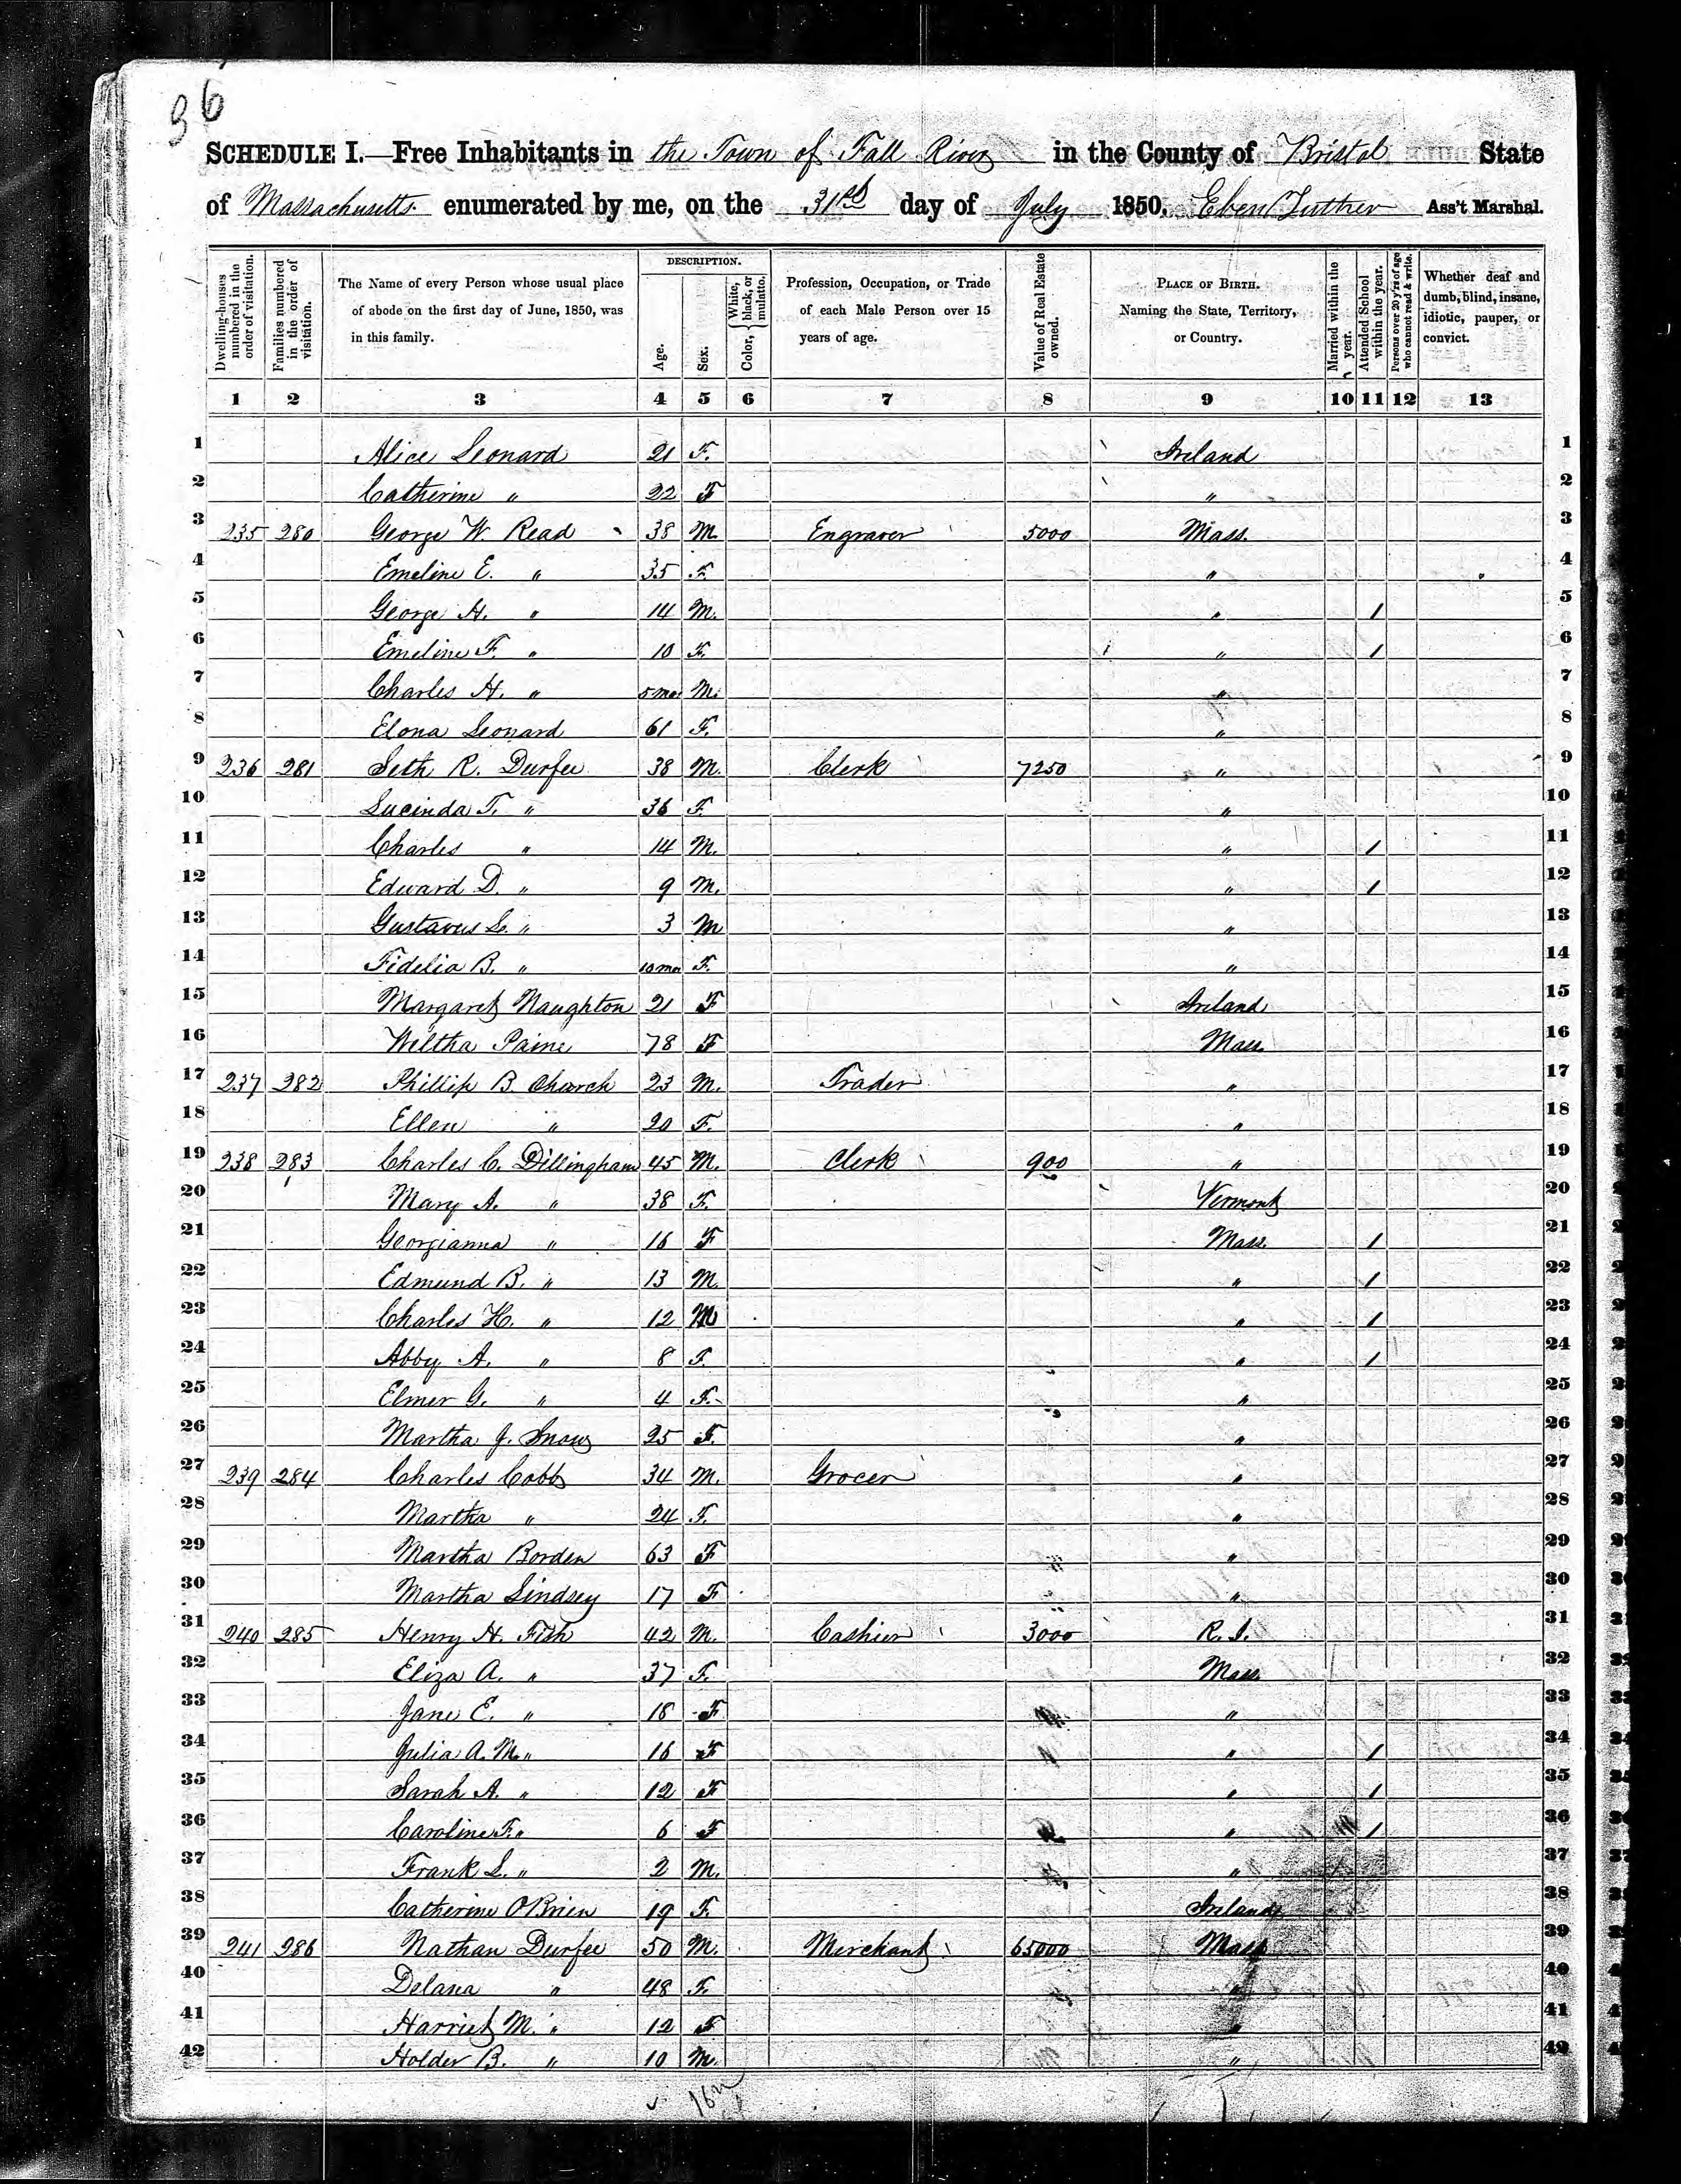 36
SCHEDULE I.—Free Inhabitants in the Town of Fall River in the County of Bristol State
of Massachusetts enumerated by me, on the 31st day of July 1850. Eben Luther Ass't Marshal.
Dwelling-houses numbered in the order of visitation.
Families numbered in the order of visitation.
The Name of every Person whose usual place of abode on the first day of June, 1850, was in this family.
DESCRIPTION.
Age.
Sex.
Color, White, black, or mulatto.
Profession, Occupation, or Trade of each Male Person over 15 years of age.
Value of Real Estate owned.
PLACE OF BIRTH. Naming the State, Territory, or Country.
Married within the year.
Attended School within the year.
Persons over 20 y'rs of age who cannot read & write.
Whether deaf and dumb, blind, insane, idiotic, pauper, or convict.
1 2 3 4 5 6 7 8 9 10 11 12 13
1 Alice Leonard 21 F. Ireland 1
2 Catherine " 22 F " 2
3 235 280 George W. Read 38 M Engraver 5000 Mass. 3
4 Emeline E. " 35 F. " 4
5 George H. " 14 M. " 1 5
6 Emeline F. " 10 F. " 1 6
7 Charles H. " 5 mo. M. " 7
8 Elona Leonard 61 F. " 8
9 236 281 Seth R. Durfee 38 M. Clerk 7250 " 9
10 Lucinda T. " 36 F. " 10
11 Charles " 14 M. " 1 11
12 Edward D. " 9 M. " 1 12
13 Gustavus L. " 3 M " 13
14 Fidelia B. " 10 mo F. " 14
15 Margaret Naughton 21 F Ireland 15
16 Weltha Paine 78 F Mass 16
17 237 282 Phillip B. Church 23 M. Trader " 17
18 Ellen " 20 F. " 18
19 238 283 Charles C. Dillingham 45 M. Clerk 900 " 19
20 Mary A. " 38 F. Vermont 20
21 Georgianna " 16 F Mass. 1 21
22 Edmund B. " 13 M. " 1 22
23 Charles H. " 12 M " 1 23
24 Abby A. " 8 F. " 1 24
25 Elmer G. " 4 F. " 25
26 Martha J. Snow 25 F. " 26
27 239 284 Charles Cobb 34 M. Grocer " 27
28 Martha " 24 F. " 28
29 Martha Borden 63 F " 29
30 Martha Lindsey 17 F " 30
31 240 285 Henry H. Fish 42 M. Cashier 3000 R. I. 31
32 Eliza A. " 37 F. Mass 32
33 Jane E. " 18 F " 33
34 Julia A. M. " 16 F " 1 34
35 Sarah A. " 12 F " 1 35
36 Caroline F. " 6 F " 1 36
37 Frank S. " 2 M. " 37
38 Catherine O'Brien 19 F. Ireland 38
39 241 286 Nathan Durfee 50 M. Merchant 65000 Mass 39
40 Delana " 48 F. " 40
41 Harriet M. " 12 F " 41
42 Holder B. " 10 M. " 42